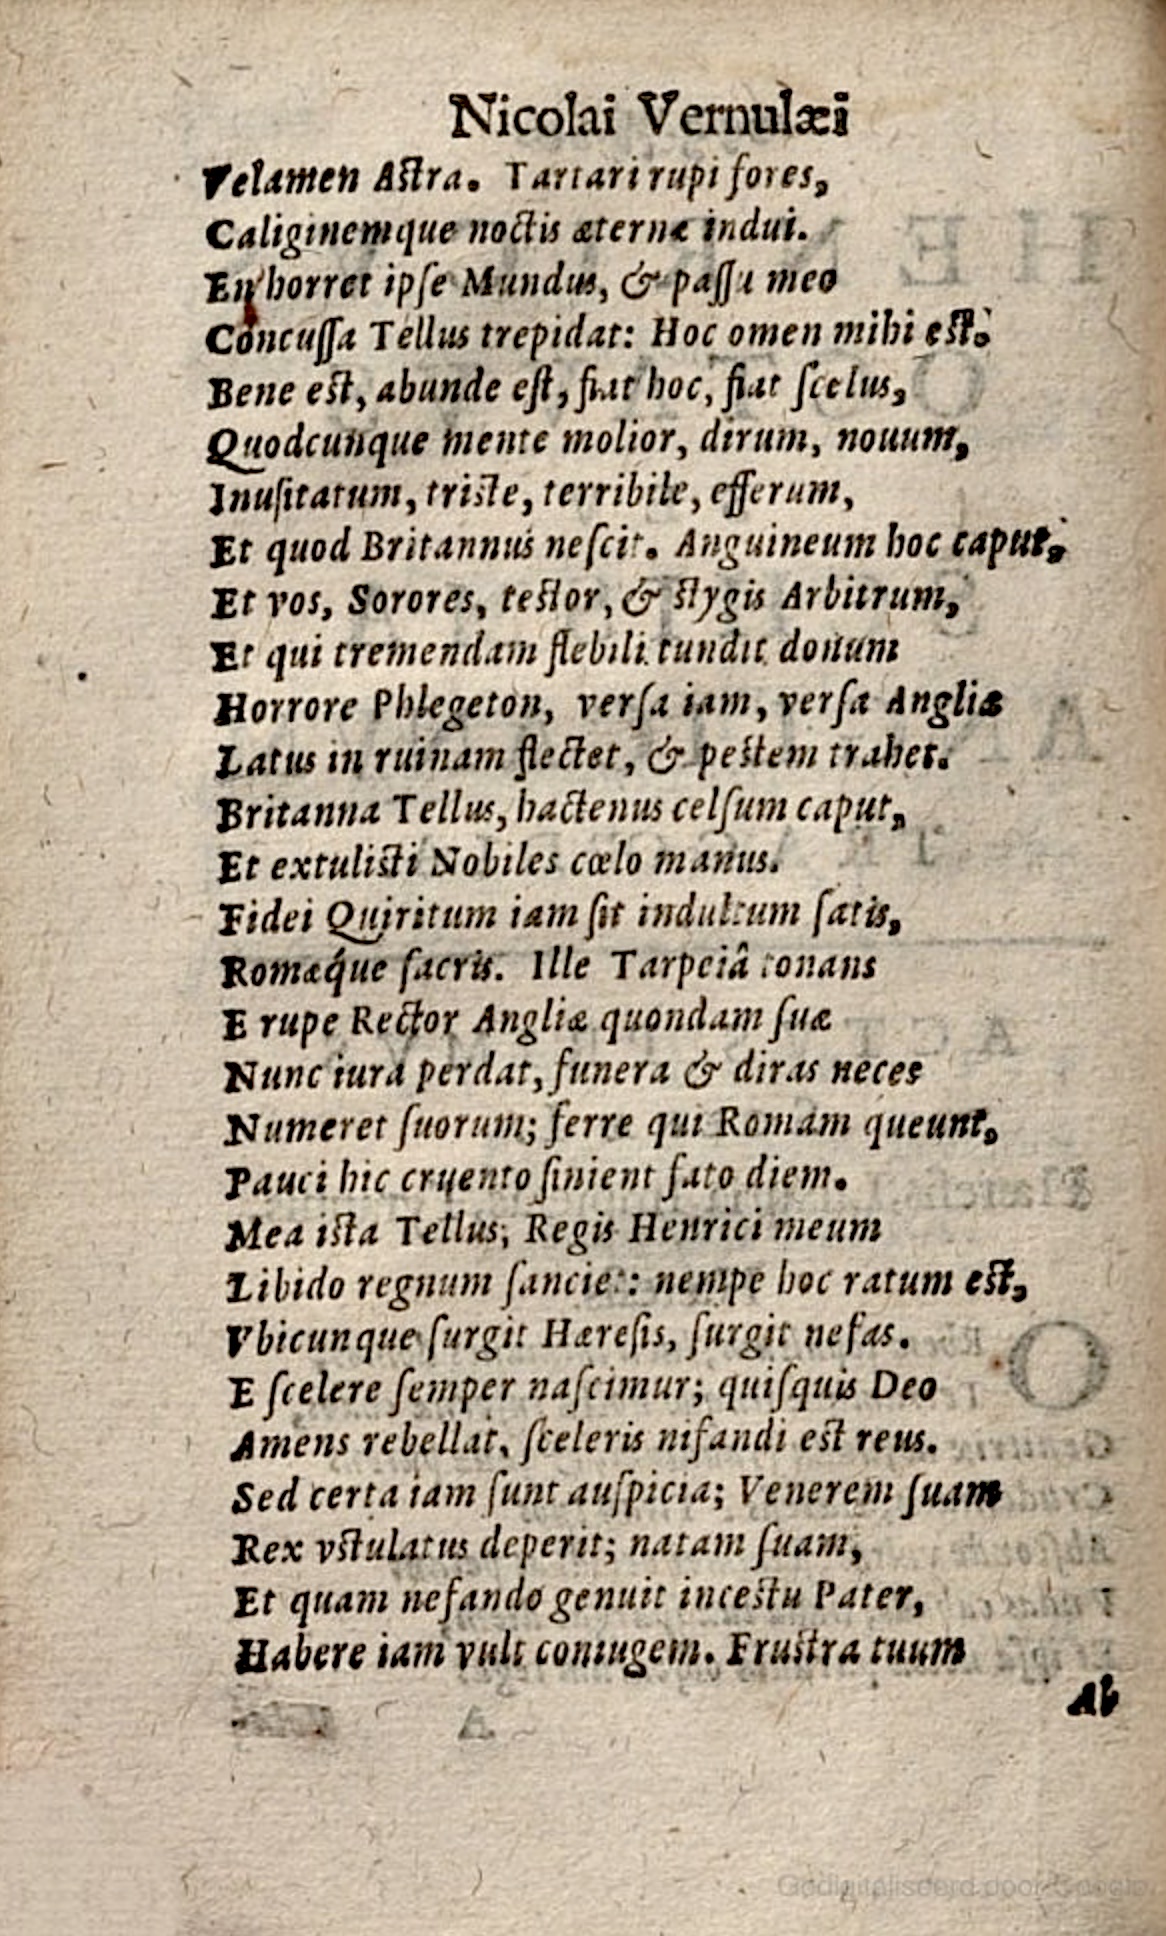 Nicolai Vernulæi
Velamen Astra. Tartari rupi fores,
Caliginemque noctis æternæ indui.
En horret ipse Mundus, & passu meo
Concussa Tellus trepidat: Hoc omen mihi est.
Bene est, abunde est, fiat hoc, fiat scelus,
Quodcunque mente molior, dirum, nouum,
Inusitatum, triste, terribile, efferum,
Et quod Britannus nescit. Anguineum hoc caput,
Et vos, Sorores, testor, & stygis Arbitrum,
Et qui tremendam flebili tundit domum
Horrore Phlegeton, versa iam, versa Angliæ
Latus in ruinam flectet, & pestem trahet.
Britanna Tellus, hactenus celsum caput,
Et extulisti Nobiles cœlo manus.
Fidei Quiritum iam sit indultum satis,
Romæq́ue sacris. Ille Tarpeiâ tonans
E rupe Rector Angliæ quondam suæ
Nunc iura perdat, funera & diras neces
Numeret suorum; ferre qui Romam queunt,
Pauci hic cruento finient fato diem.
Mea ista Tellus; Regis Henrici meum
Libido regnum sanciet: nempe hoc ratum est,
Vbicunque surgit Hæresis, surgit nefas.
E scelere semper nascimur; quisquis Deo
Amens rebellat, sceleris nifandi est reus.
Sed certa iam sunt auspicia; Venerem suam
Rex vstulatus deperit; natam suam,
Et quam nefando genuit incestu Pater,
Habere iam vult coniugem. Frustra tuum
Ab